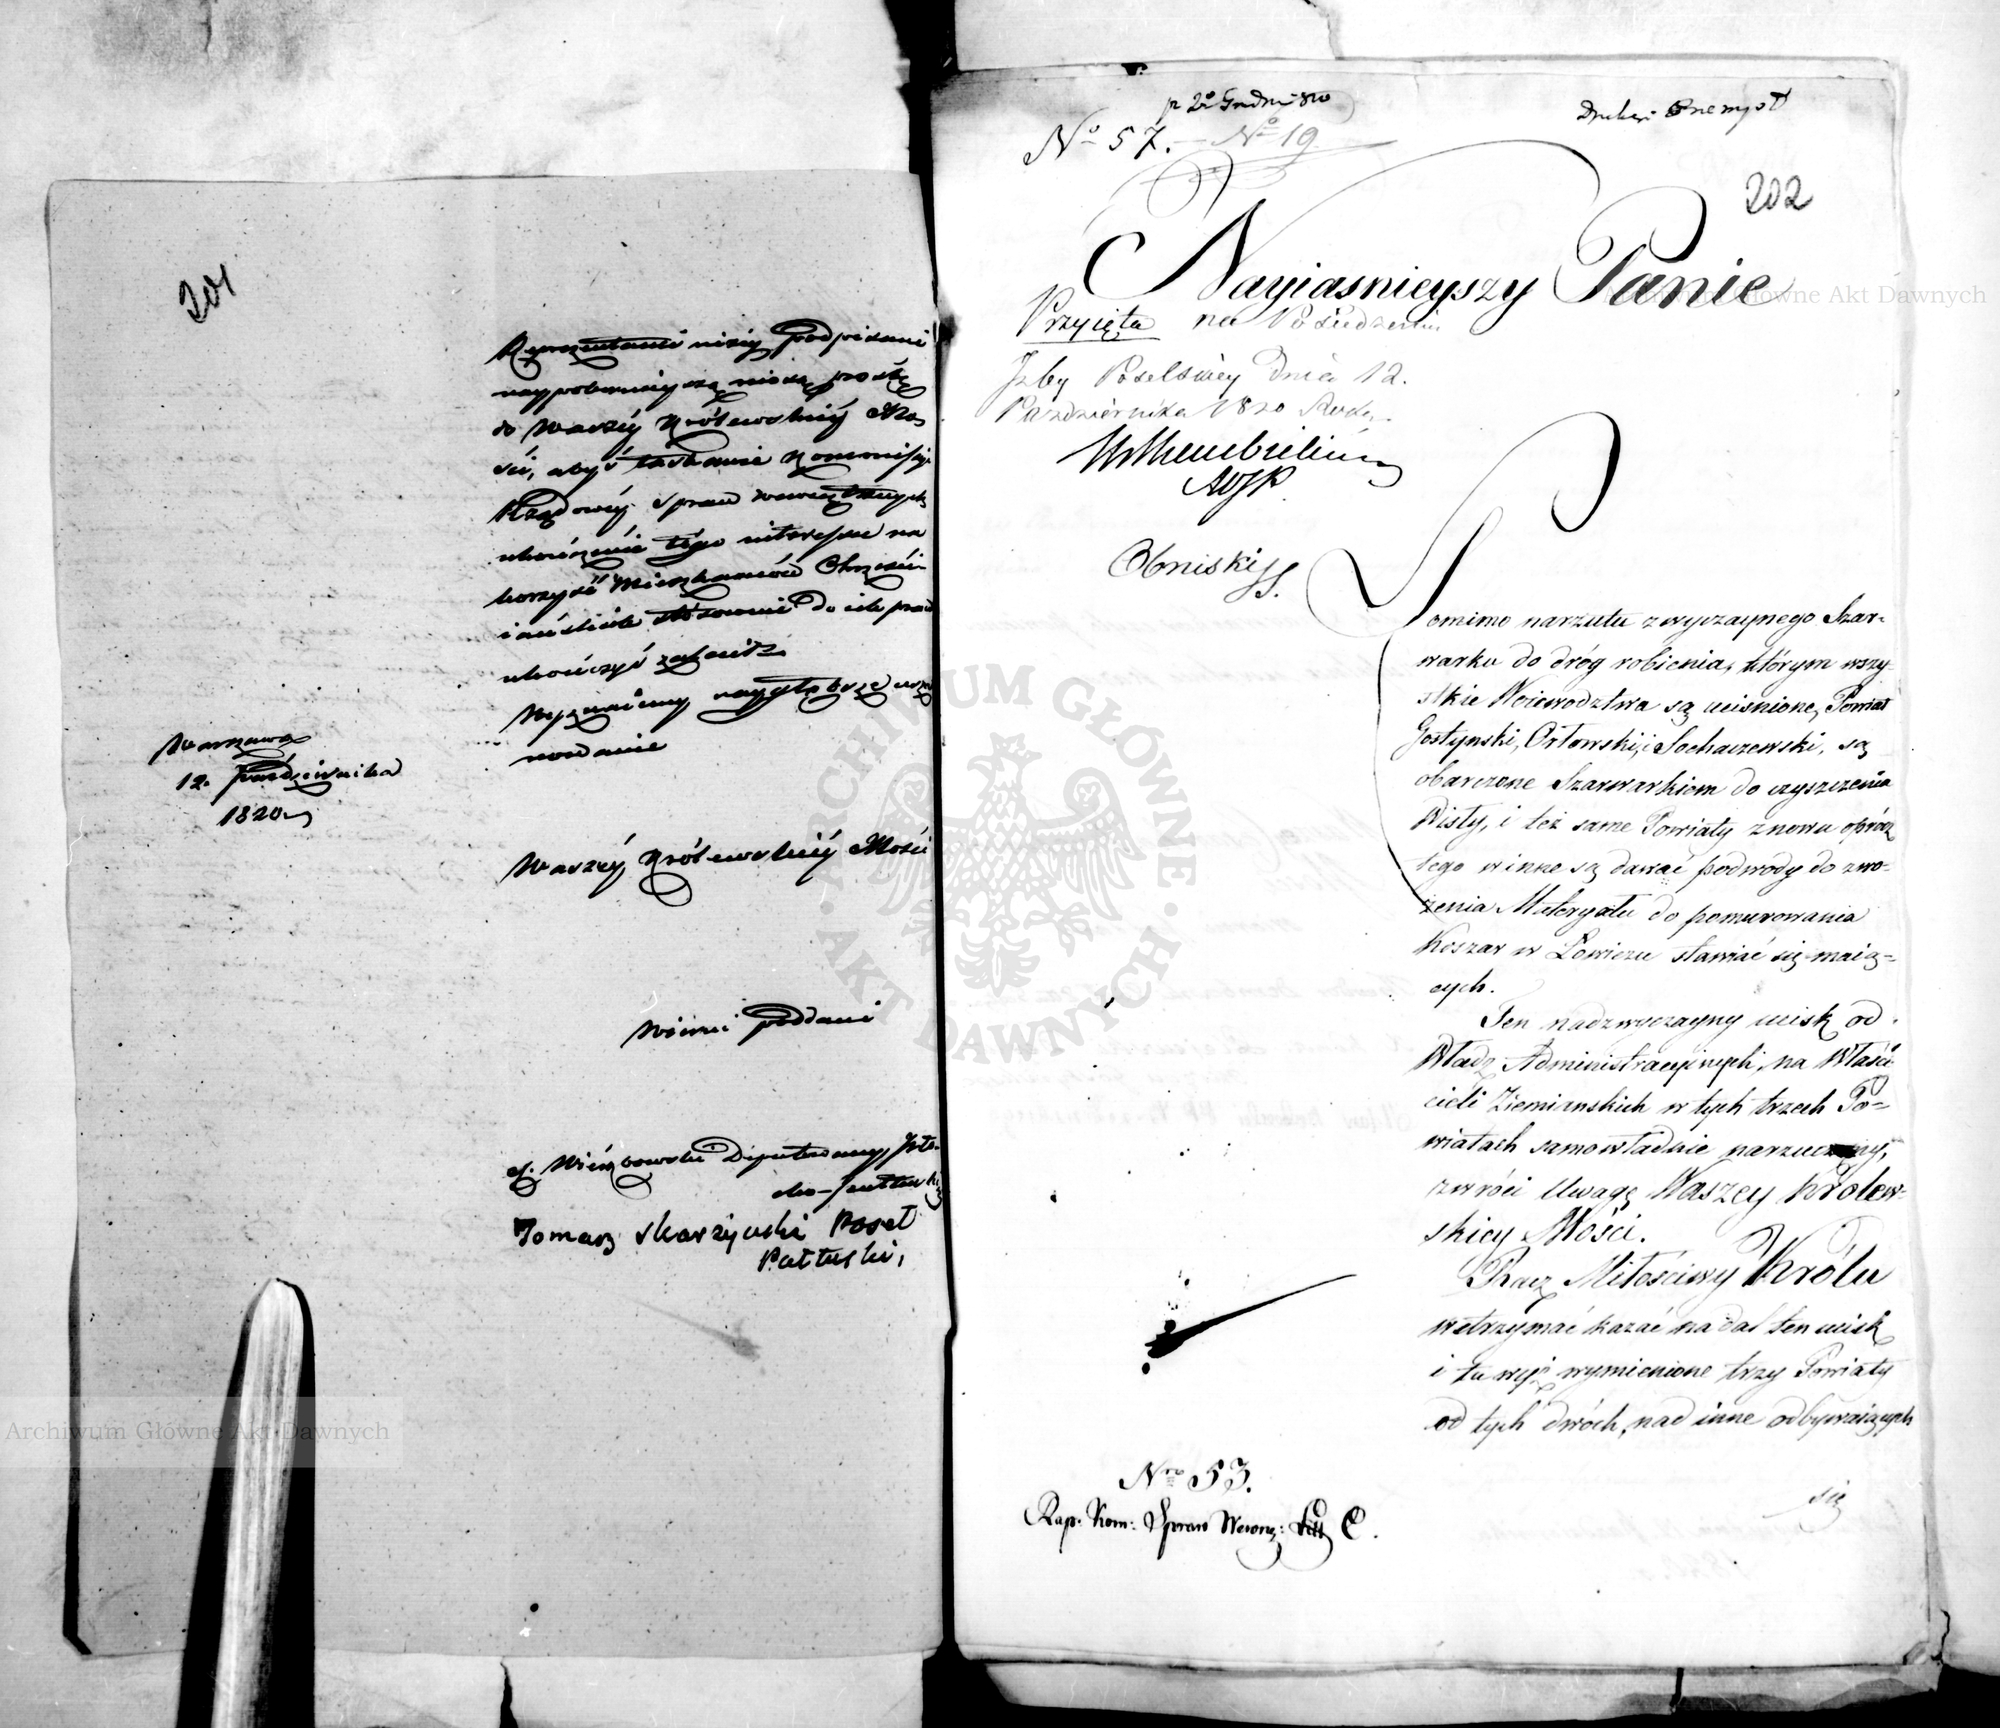 201
Reprezentanci niżey podpisani
naypokornieyszą niosą prośbę
do Waszéy Królewskiéy Mo-
ści, abyś łaskawie Kommissyi
Rządowéy Spraw wewnętrznych
ukończenie tego interesu na
korzyść Mieszkańców Chrześci-
iańskich stosownie do ich praw
ukończyć zalecił
Warszawa
12. Października
1820
Waszéy Królewskiéy Mości
Wierni poddani
Deputowany
Tomasz Skarżyński Poseł
Pułtuski,
p 2º Grudnia 820
Nº 57. Nº 19
202
Nayiaśnieyszy Panie
Przyięta na Posiedzeniu
Izby Poselskiey Dnia 12.
Października 1820 Roku.
Obniski S.
Pomimo narzutu zwyczaynego Szar-
warku do dróg robienia, którym wszy-
stkie Woiewodztwa są uciśnione, Powiat
Gostynski, Orłowski, i Sochaczewski, są
obarczone Szarwarkiem do czyszczenia
Wisły, i też same Powiaty znowu oprócz
tego winne są dawać podwody do zwo-
żenia Materyału do pomurowania
Koszar w Łowiczu stawiać się maią-
cych.
Ten nadzwyczayny ucisk od
Władz Administracyinych, na Właści-
cieli Ziemianskich w tych trzech Po-
wiatach samowładnie narzucony,
zwróci Uwagę Waszey Królew-
skiey Mości.
Racz Miłościwy Królu
wstrzymać kazać na dal ten ucisk
i tu wyż wymienione trzy Powiaty
od tych dwóch, nad inne odbywaiących
się
Nro 53.
Rap: Kom: Spraw Wewnę: Litt C.
ARCHIWUM GŁÓWNE
AKT DAWNYCH
Archiwum Główne Akt Dawnych
Archiwum Główne Akt Dawnych